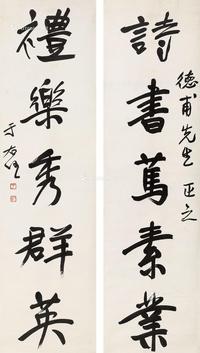 德甫先生 正之
詩書篤素業
禮樂秀群英
于右任